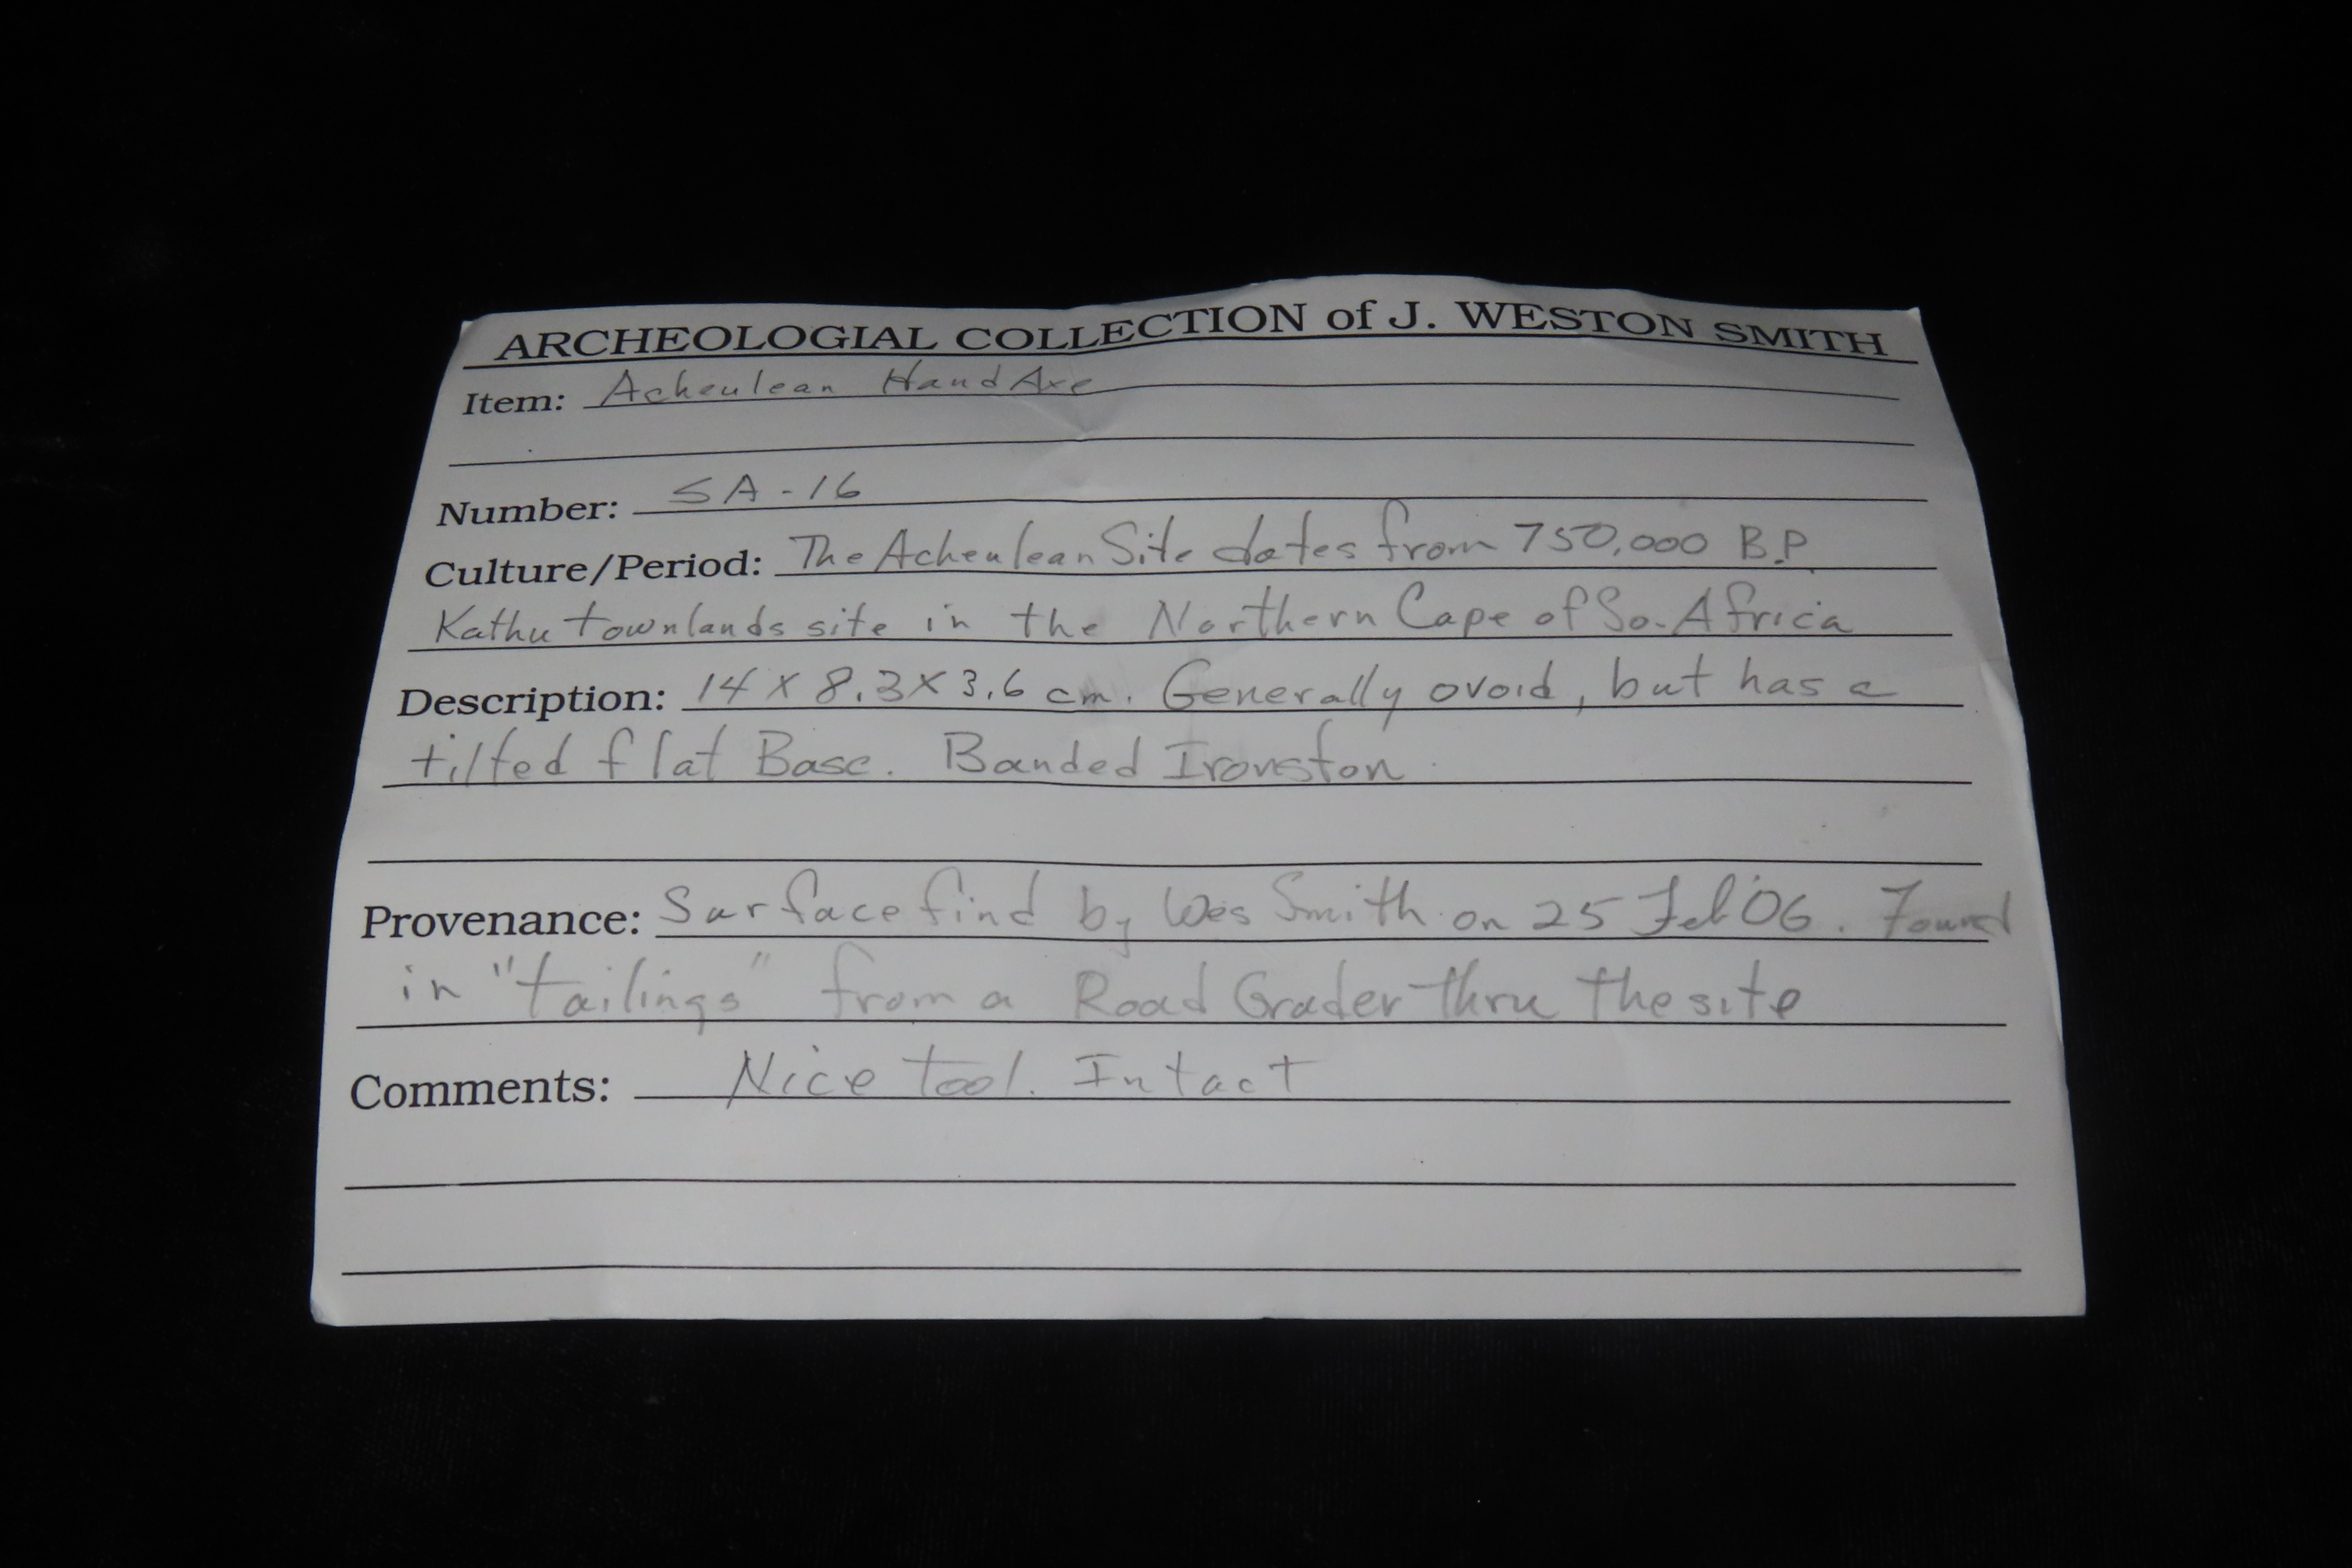 ARCHEOLOGIAL COLLECTION of J. WESTON SMITH
Item: Acheulean Hand Axe
Number: SA-16
Culture/Period: The Acheulean Site dates from 750,000 B.P.
Kathu townlands site in the Northern Cape of So. Africa
Description: 14 X 8.3 X 3.6 cm. Generally ovoid, but has a
tilted flat Base. Banded Ironston
Provenance: Surface find by Wes Smith on 25 Feb '06. Found
in "tailings" from a Road Grader thru the site
Comments: Nice tool. Intact